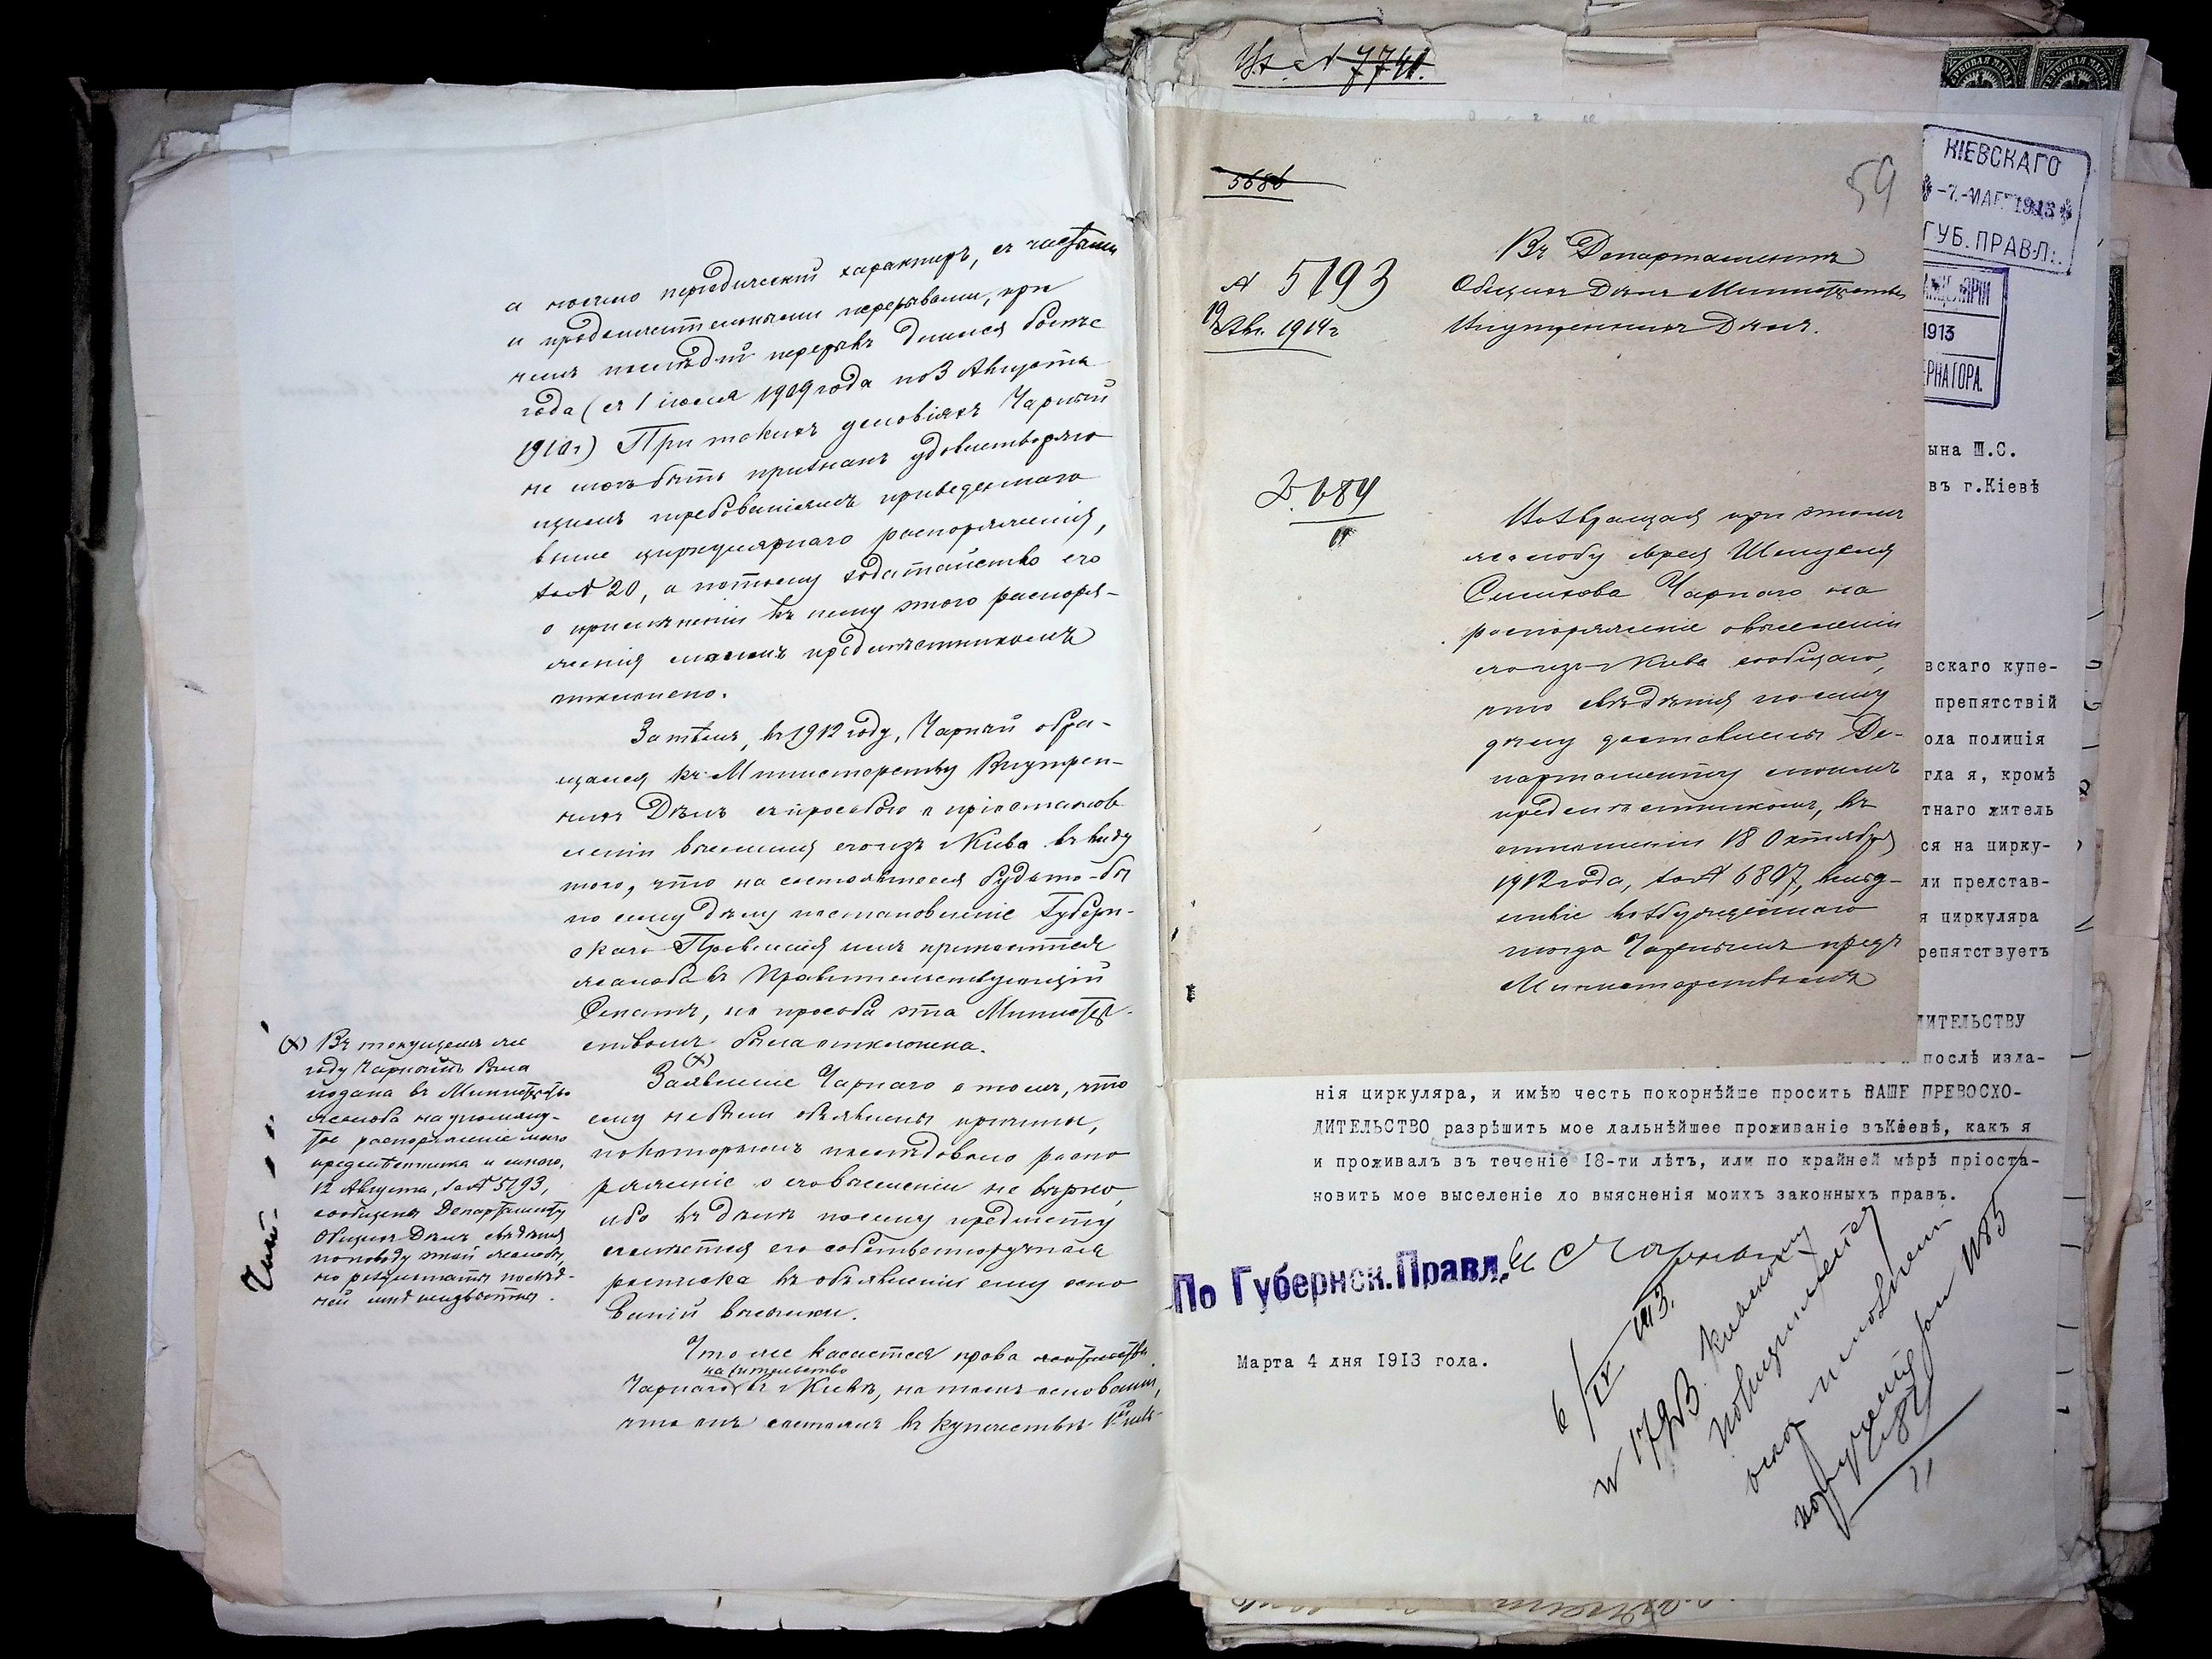 а носило періодическій характеръ, съ частыми
и продолжительными перерывами, при
чемъ послѣдній перерывъ длился болѣе
года (съ 1 іюля 1909 года по 3 Августа
1910 г) При такихъ условіяхъ Чарный
не могъ быть признанъ удовлетворяю
щимъ требованіямъ приведеннаго
выше циркулярнаго распоряженія,
за № 20, а потому ходатайство его
о примѣненіи къ нему этого распоря-
женія моимъ предмѣстникомъ
отклонено.
Затѣмъ, въ 1912 году, Чарный обра-
щался къ Министерству Внутрен-
нихъ Дѣлъ съ просьбою о пріостанов
леніи выселенія его изъ Кіева въ виду
того, что на состоявшееся будто-бы
по сему дѣлу постановленіе Губерн-
скаго Правленія имъ приносится
жалоба въ Правительствующій
Сенатъ, но просьба эта Министер-
ствомъ была отклонена.
(х)
Заявленіе Чарнаго о томъ, что
ему не были объявлены причины,
по которымъ послѣдовало распо
ряженіе о его выселеніи не вѣрно,
ибо въ дѣлѣ по сему предмету
имѣется его собственноручная
росписка въ объявленіи ему осно
ваній высылки.
Что же касается права
на жительство
Чарнаго въ Кіевѣ, на томъ основаніи,
что онъ состоялъ въ купечествѣ
(х) Въ текущемъ же
году Чарнымъ была
подана въ Министерство
жалоба на упомяну-
тое распоряженіе моего
предмѣстника и мною,
12 Августа, за № 5193,
сообщены Департаменту
Общихъ Дѣлъ свѣдѣнія
по поводу этой жалобы,
но результатъ послѣд-
ней мнѣ неизвѣстенъ.
№ 7741.
5686
59
№ 5193
12 Авг. 1914 г
Въ Департаментъ
Общихъ Дѣлъ Министерства
Внутреннихъ Дѣлъ.
Д. 684
II
Возвращая при этомъ
жалобу еврея
Чарнаго на
распоряженіе о выселеніи
его изъ Кіева сообщаю,
что свѣдѣнія по сему
дѣлу доставлены Де-
партаменту моимъ
предмѣстникомъ, въ
отношеніи 18 Октября
1912 года, за № 6807, вслѣд-
ствіе возбужденнаго
тогда Чарнымъ предъ
Министерствомъ
КІЕВСКАГО
-7.-МАР 1913
ГУБ. ПРАВЛ.
1913
ЕРНАТОРА.
ына Ш.С.
въ г.Кіевѣ
вскаго купе-
препятствій
ода полиція
гла я, кромѣ
тнаго житель
ся на цирку-
ли представ-
я циркуляра
репятствуетъ
ДИТЕЛЬСТВУ
и послѣ изда-
нія циркуляра, и имѣю честь покорнѣйше просить ВАШЕ ПРЕВОСХО-
ДИТЕЛЬСТВО разрѣшить мое дальнѣйшее проживаніе въКіевѣ, какъ я
и проживалъ въ теченіе 18-ти лѣтъ, или по крайней мѣрѣ пріоста-
новить мое выселеніе до выясненія моихъ законныхъ правъ.
По Губернск.Правл.
Марта 4 дня 1913 года.
6/IV 1913.